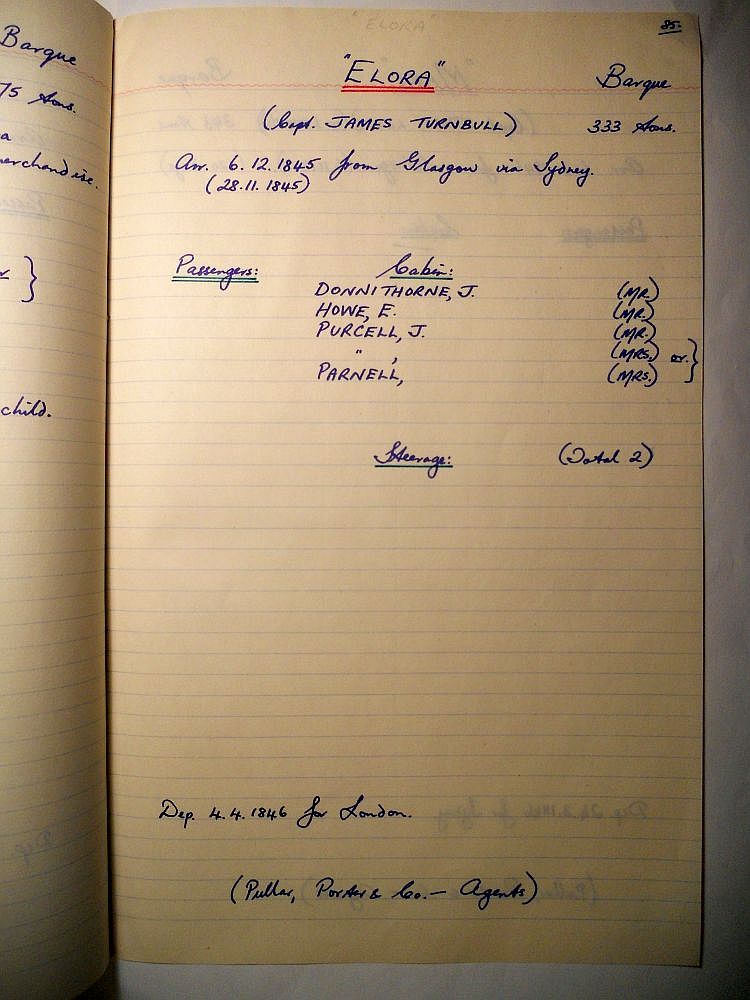 Barque
75 tons.
a
merchandise.
}
child.
"ELORA"
85.
"ELORA" Barque
(Capt. JAMES TURNBULL) 333 tons.
Arr. 6.12.1845 from Glasgow via Sydney.
(28.11.1845)
Passengers: Cabin:
DONNITHORNE, J. (MR.)
HOWE, E. (MR.)
PURCELL, J. (MR.)
" , (MRS.) or. }
PARNELL, (MRS.)
Steerage: (Total 2)
Dep. 4.4.1846 for London.
(Pullar, Porter & Co. — Agents)